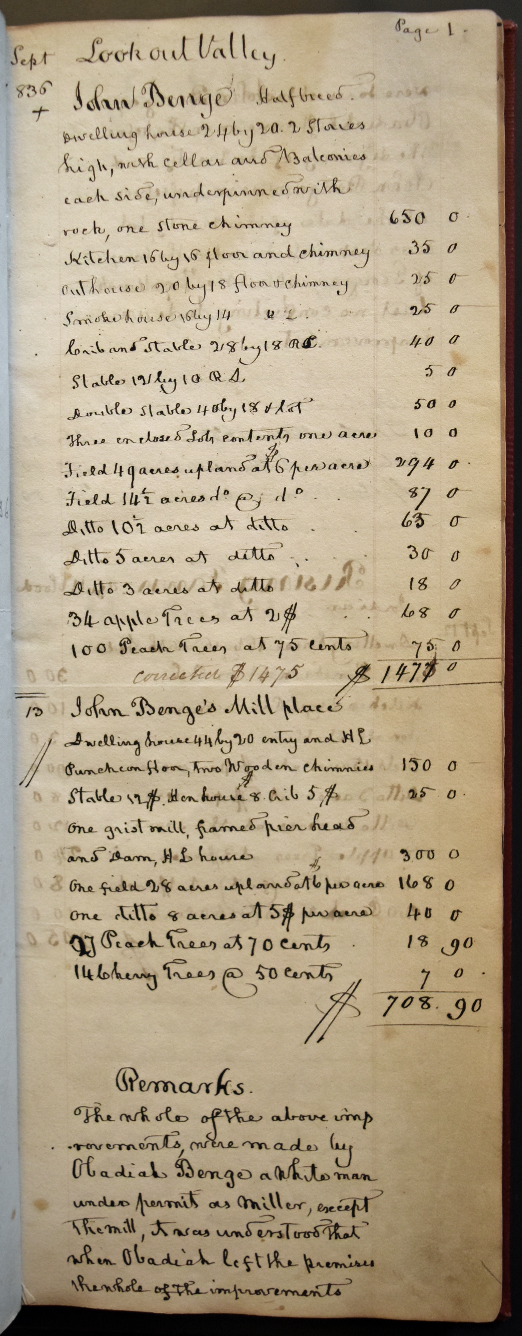 Page 1.
Sept Lookout Valley.
836
+ John Benge Halfbreed.
Dwelling house 24 by 20. 2 Stories
high, with cellar and Balconies
each side, underpinned with
rock, one stone chimney 650 0
Kitchen 16 by 16 floor and chimney 35 0
Out house 20 by 18 floor & chimney 25 0
Smoke house 16 by 14 25 0
Crib and Stable 28 by 18 R L. 40 0
Stable 12 by 10 R L 5 0
Double Stable 40 by 18 & lot 50 0
Three enclosed Lots contents one acre 10 0
Field 49 acres upland at $6 per acre 294 0
Field 14½ acres do @ do 87 0
Ditto 10½ acres at ditto 63 0
Ditto 5 acres at ditto 30 0
Ditto 3 acres at ditto 18 0
34 apple Trees at 2$ 68 0
100 Peach Trees at 75 cents 75 0
corrected $1475 $ 1475 0
13 John Benge's Mill place
// Dwelling house 44 by 20 entry and H L
Puncheon floor, two Wooden chimnies 150 0
Stable 12$. Hen house $8. Crib 5$ 25 0
One grist mill, framed pier head
and Dam, H L house 300 0
One field 28 acres upland at $6 per acre 168 0
One ditto 8 acres at 5$ per acre 40 0
27 Peach Trees at 70 cents 18 90
14 Cherry Trees @ 50 cents 7 0
$ 708.90
Remarks.
The whole of the above imp
rovements, were made by
Obadiah Benge a white man
under permit as Miller, except
The mill, it was understood that
when Obadiah left the premises
the whole of the improvements